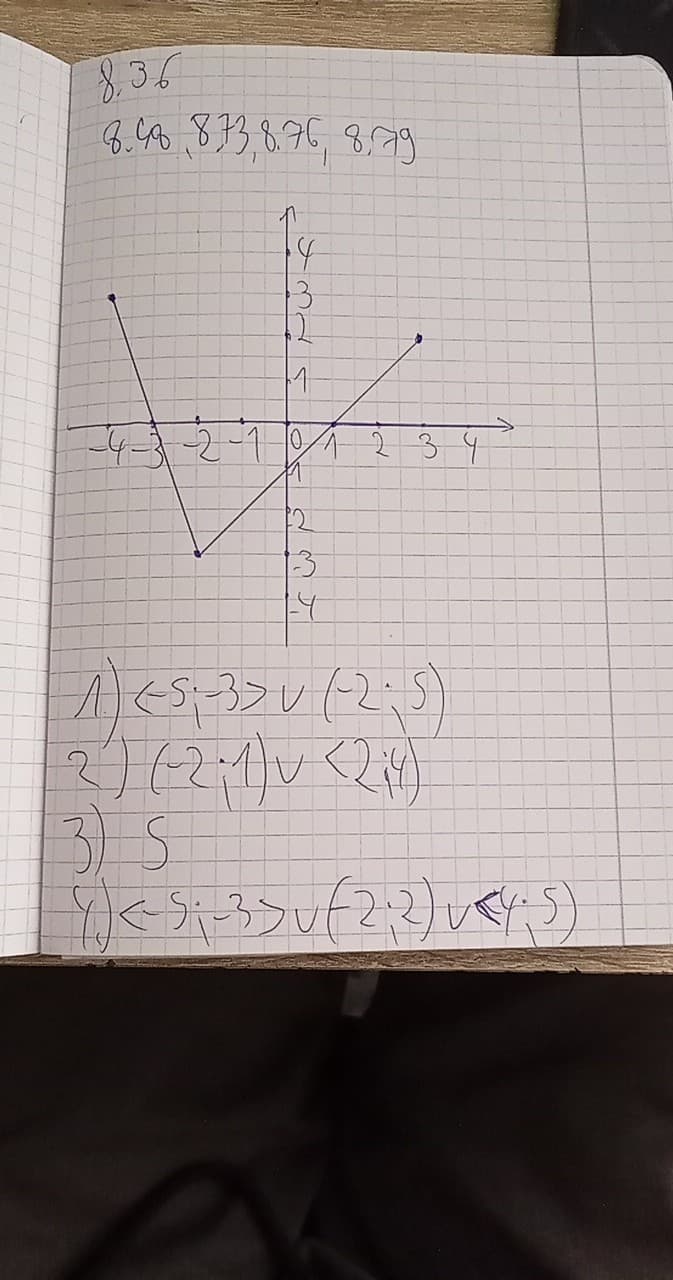 8.36
8.48, 8.73, 8.76, 8.79
4
3
2
1
-4 -3 -2 -1 0 1 2 3 4
-1
-2
-3
-4
1) <-5;-3> ∪ (-2;5)
2) (-2;1) ∪ <2;4)
3) 5
4) <-5;-3> ∪ (-2;2) ∪ <4;5)